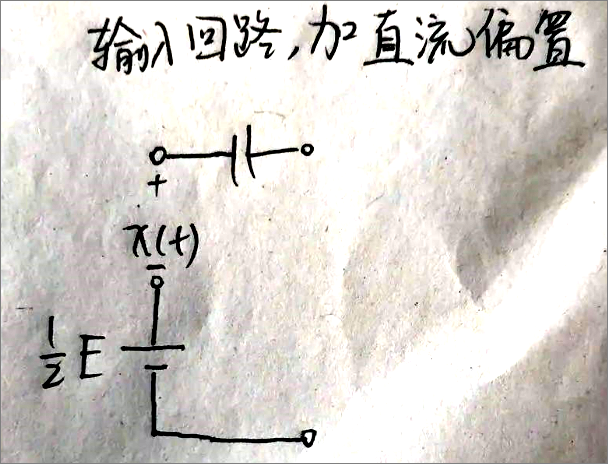 输入回路,加直流偏置
+
x(t)
−
½E